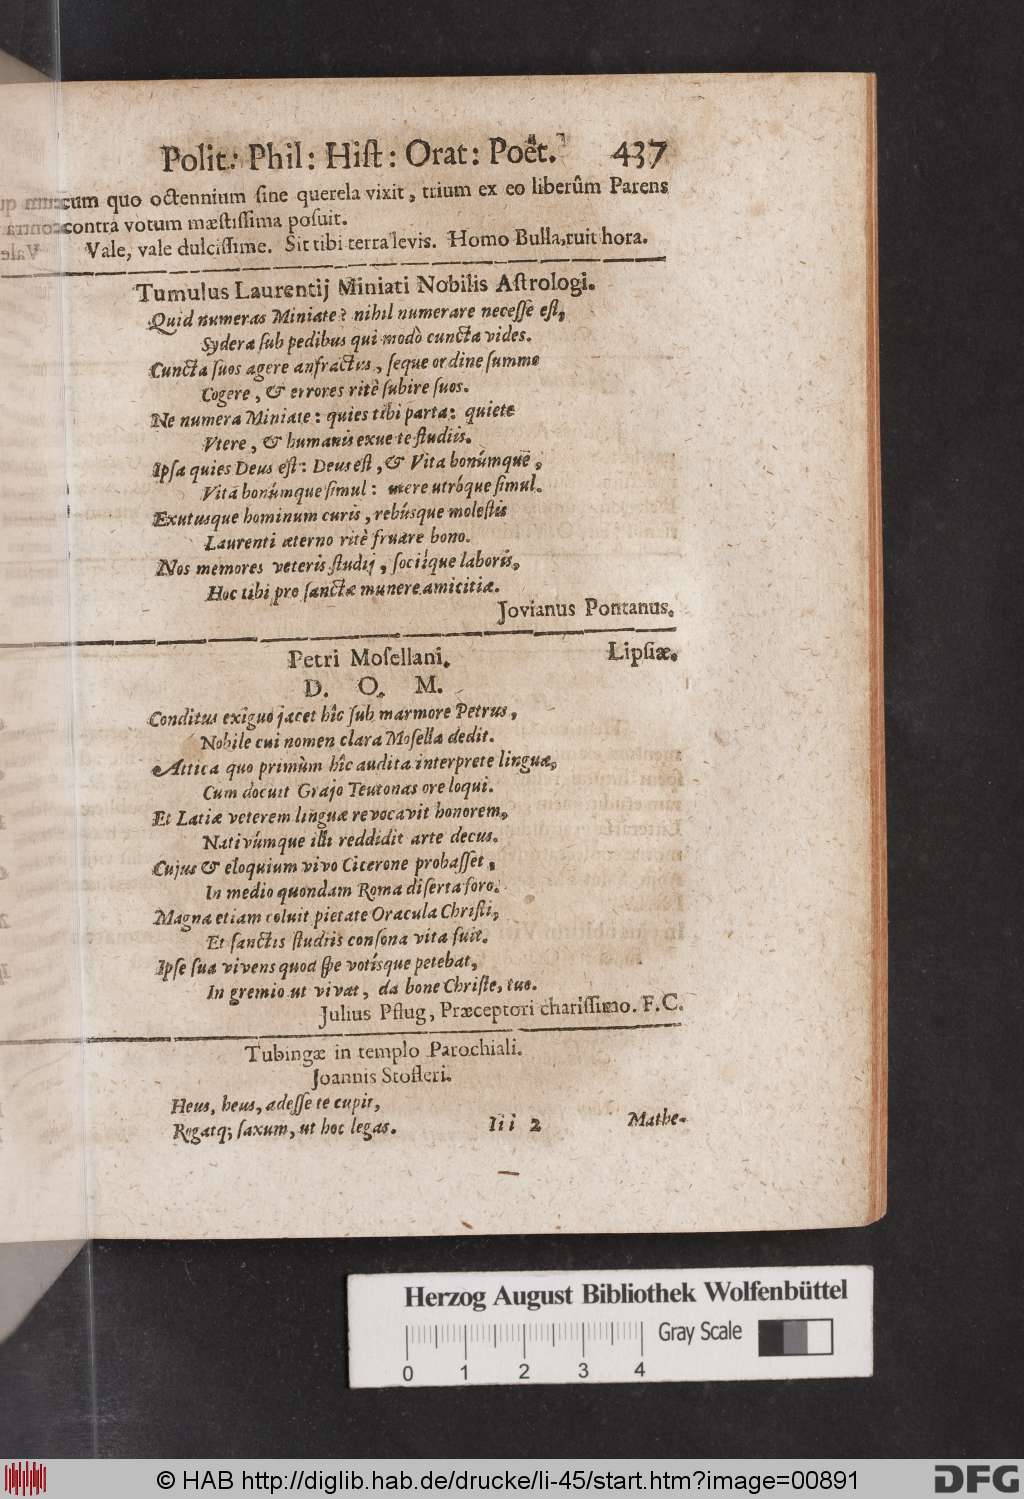 Polit: Phil: Hist: Orat: Poët. 437
cum quo octennium sine querela vixit, trium ex eo liberûm Parens
contra votum mæstissima posuit.
Vale, vale dulcissime. Sit tibi terra levis. Homo Bulla, ruit hora.
Tumulus Laurentij Miniati Nobilis Astrologi.
Quid numeras Miniate? nihil numerare necesse est,
Sydera sub pedibus qui modò cuncta vides.
Cuncta suos agere anfractus, seque ordine summo
Cogere, & errores ritè subire suos.
Ne numera Miniate: quies tibi parta: quiete
Vtere, & humanis exue te studiis.
Ipsa quies Deus est: Deus est, & Vita bonúmque,
Vita bonúmque simul: utróque simul.
Exutusque hominum curis, rebúsque molestis
Laurenti æterno ritè fruare bono.
Nos memores veteris studij, sociíque laboris,
Hoc tibi pro sanctæ munere amicitiæ.
Jovianus Pontanus.
Petri Mosellani. Lipsiæ.
D. O. M.
Conditus exiguo jacet hîc sub marmore Petrus,
Nobile cui nomen clara Mosella dedit.
Attica quo primùm hîc audita interprete lingua,
Cum docuit Grajo Teutonas ore loqui.
Et Latiæ veterem linguæ revocavit honorem,
Nativúmque illi reddidit arte decus.
Cujus & eloquium vivo Cicerone probasset,
In medio quondam Roma diserta foro.
Magna etiam coluit pietate Oracula Christi,
Et sanctis studiis consona vita fuit.
Ipse sua vivens quod spe votísque petebat,
In gremio ut vivat, da bone Christe, tuo.
Julius Pflug, Præceptori charissimo. F. C.
Tubingæ in templo Parochiali.
Joannis Stofleri.
Heus, heus, adesse te cupit,
Rogatq; saxum, ut hoc legas.
Iii 2 Mathe-
Herzog August Bibliothek Wolfenbüttel
Gray Scale
0 1 2 3 4
© HAB http://diglib.hab.de/drucke/li-45/start.htm?image=00891
DFG